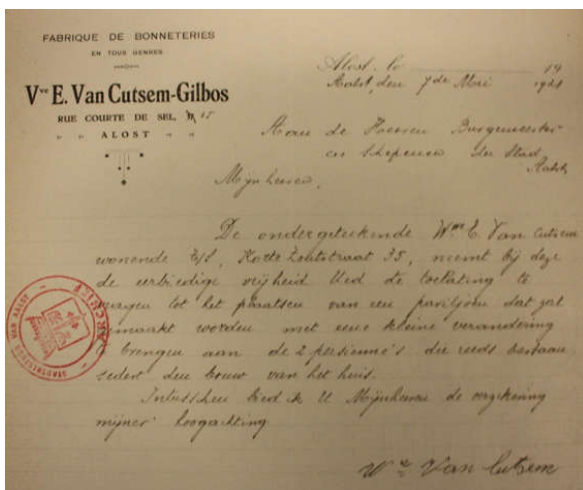 FABRIQUE DE BONNETERIES
EN TOUS GENRES
Vve E. Van Cutsem-Gilbos
RUE COURTE DE SEL, 35
" " ALOST " "
Alost, le 19
Aalst, den 7de Mei 1921
Aan de Heeren Burgemeester
en Schepenen der Stad
Aalst
Mijnheeren,
De ondergeteekende Wwe E. Van Cutsem
wonende E/S, Korte Zoutstraat 35, neemt bij deze
de eerbiedige vrijheid Ued de toelating te
vragen tot het plaatsen van een paviljoen dat zal
gemaakt worden met eene kleine verandering
te brengen aan de 2 persienne's die reeds bestaan
sedert den bouw van het huis.
Intusschen bied ik U Mijnheeren de verzekering
mijner hoogachting
Wwe Van Cutsem
STADSBESTUUR VAN AALST
ARCHIEF